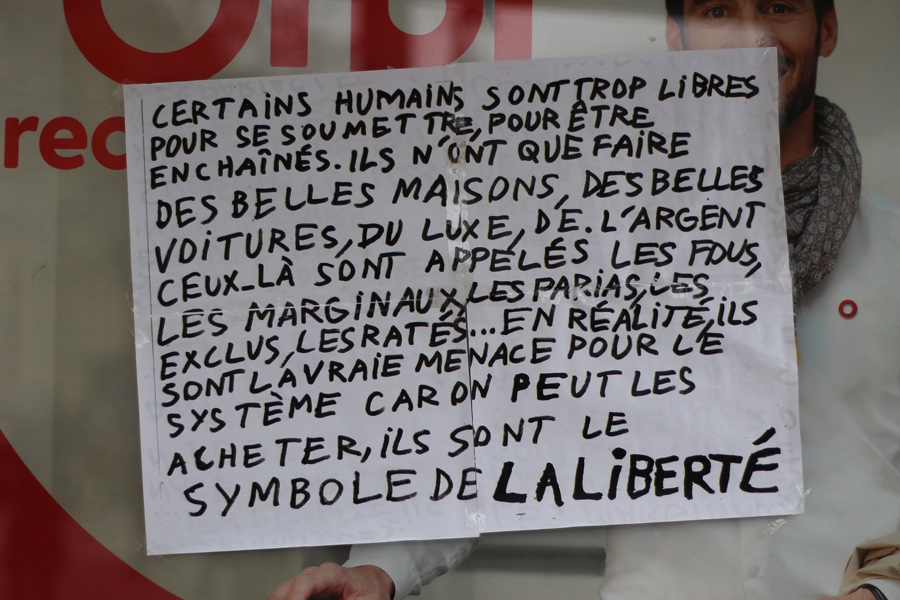 Orpi
rec
CERTAINS HUMAINS SONT TROP LIBRES
POUR SE SOUMETTRE, POUR ÊTRE
ENCHAÎNÉS. ILS N'ONT QUE FAIRE
DES BELLES MAISONS, DES BELLES
VOITURES, DU LUXE, DE. L'ARGENT
CEUX-LÀ SONT APPELÉS LES FOUS,
LES MARGINAUX, LES PARIAS, LES
EXCLUS, LES RATÉS... EN RÉALITÉ, ILS
SONT LA VRAIE MENACE POUR LE
SYSTÈME CAR ON PEUT LES
ACHETER, ILS SONT LE
SYMBOLE DE LA LIBERTÉ